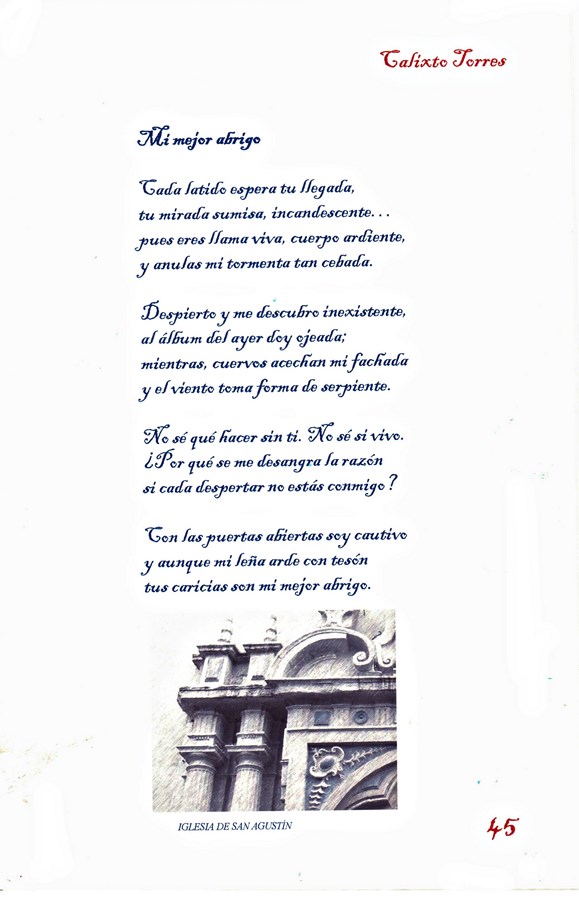 Calixto Torres
Mi mejor abrigo
Cada latido espera tu llegada,
tu mirada sumisa, incandescente...
pues eres llama viva, cuerpo ardiente,
y anulas mi tormenta tan cebada.
Despierto y me descubro inexistente,
al álbum del ayer doy ojeada;
mientras, cuervos acechan mi fachada
y el viento toma forma de serpiente.
No sé qué hacer sin ti. No sé si vivo.
¿Por qué se me desangra la razón
si cada despertar no estás conmigo?
Con las puertas abiertas soy cautivo
y aunque mi leña arde con tesón
tus caricias son mi mejor abrigo.
IGLESIA DE SAN AGUSTÍN
45